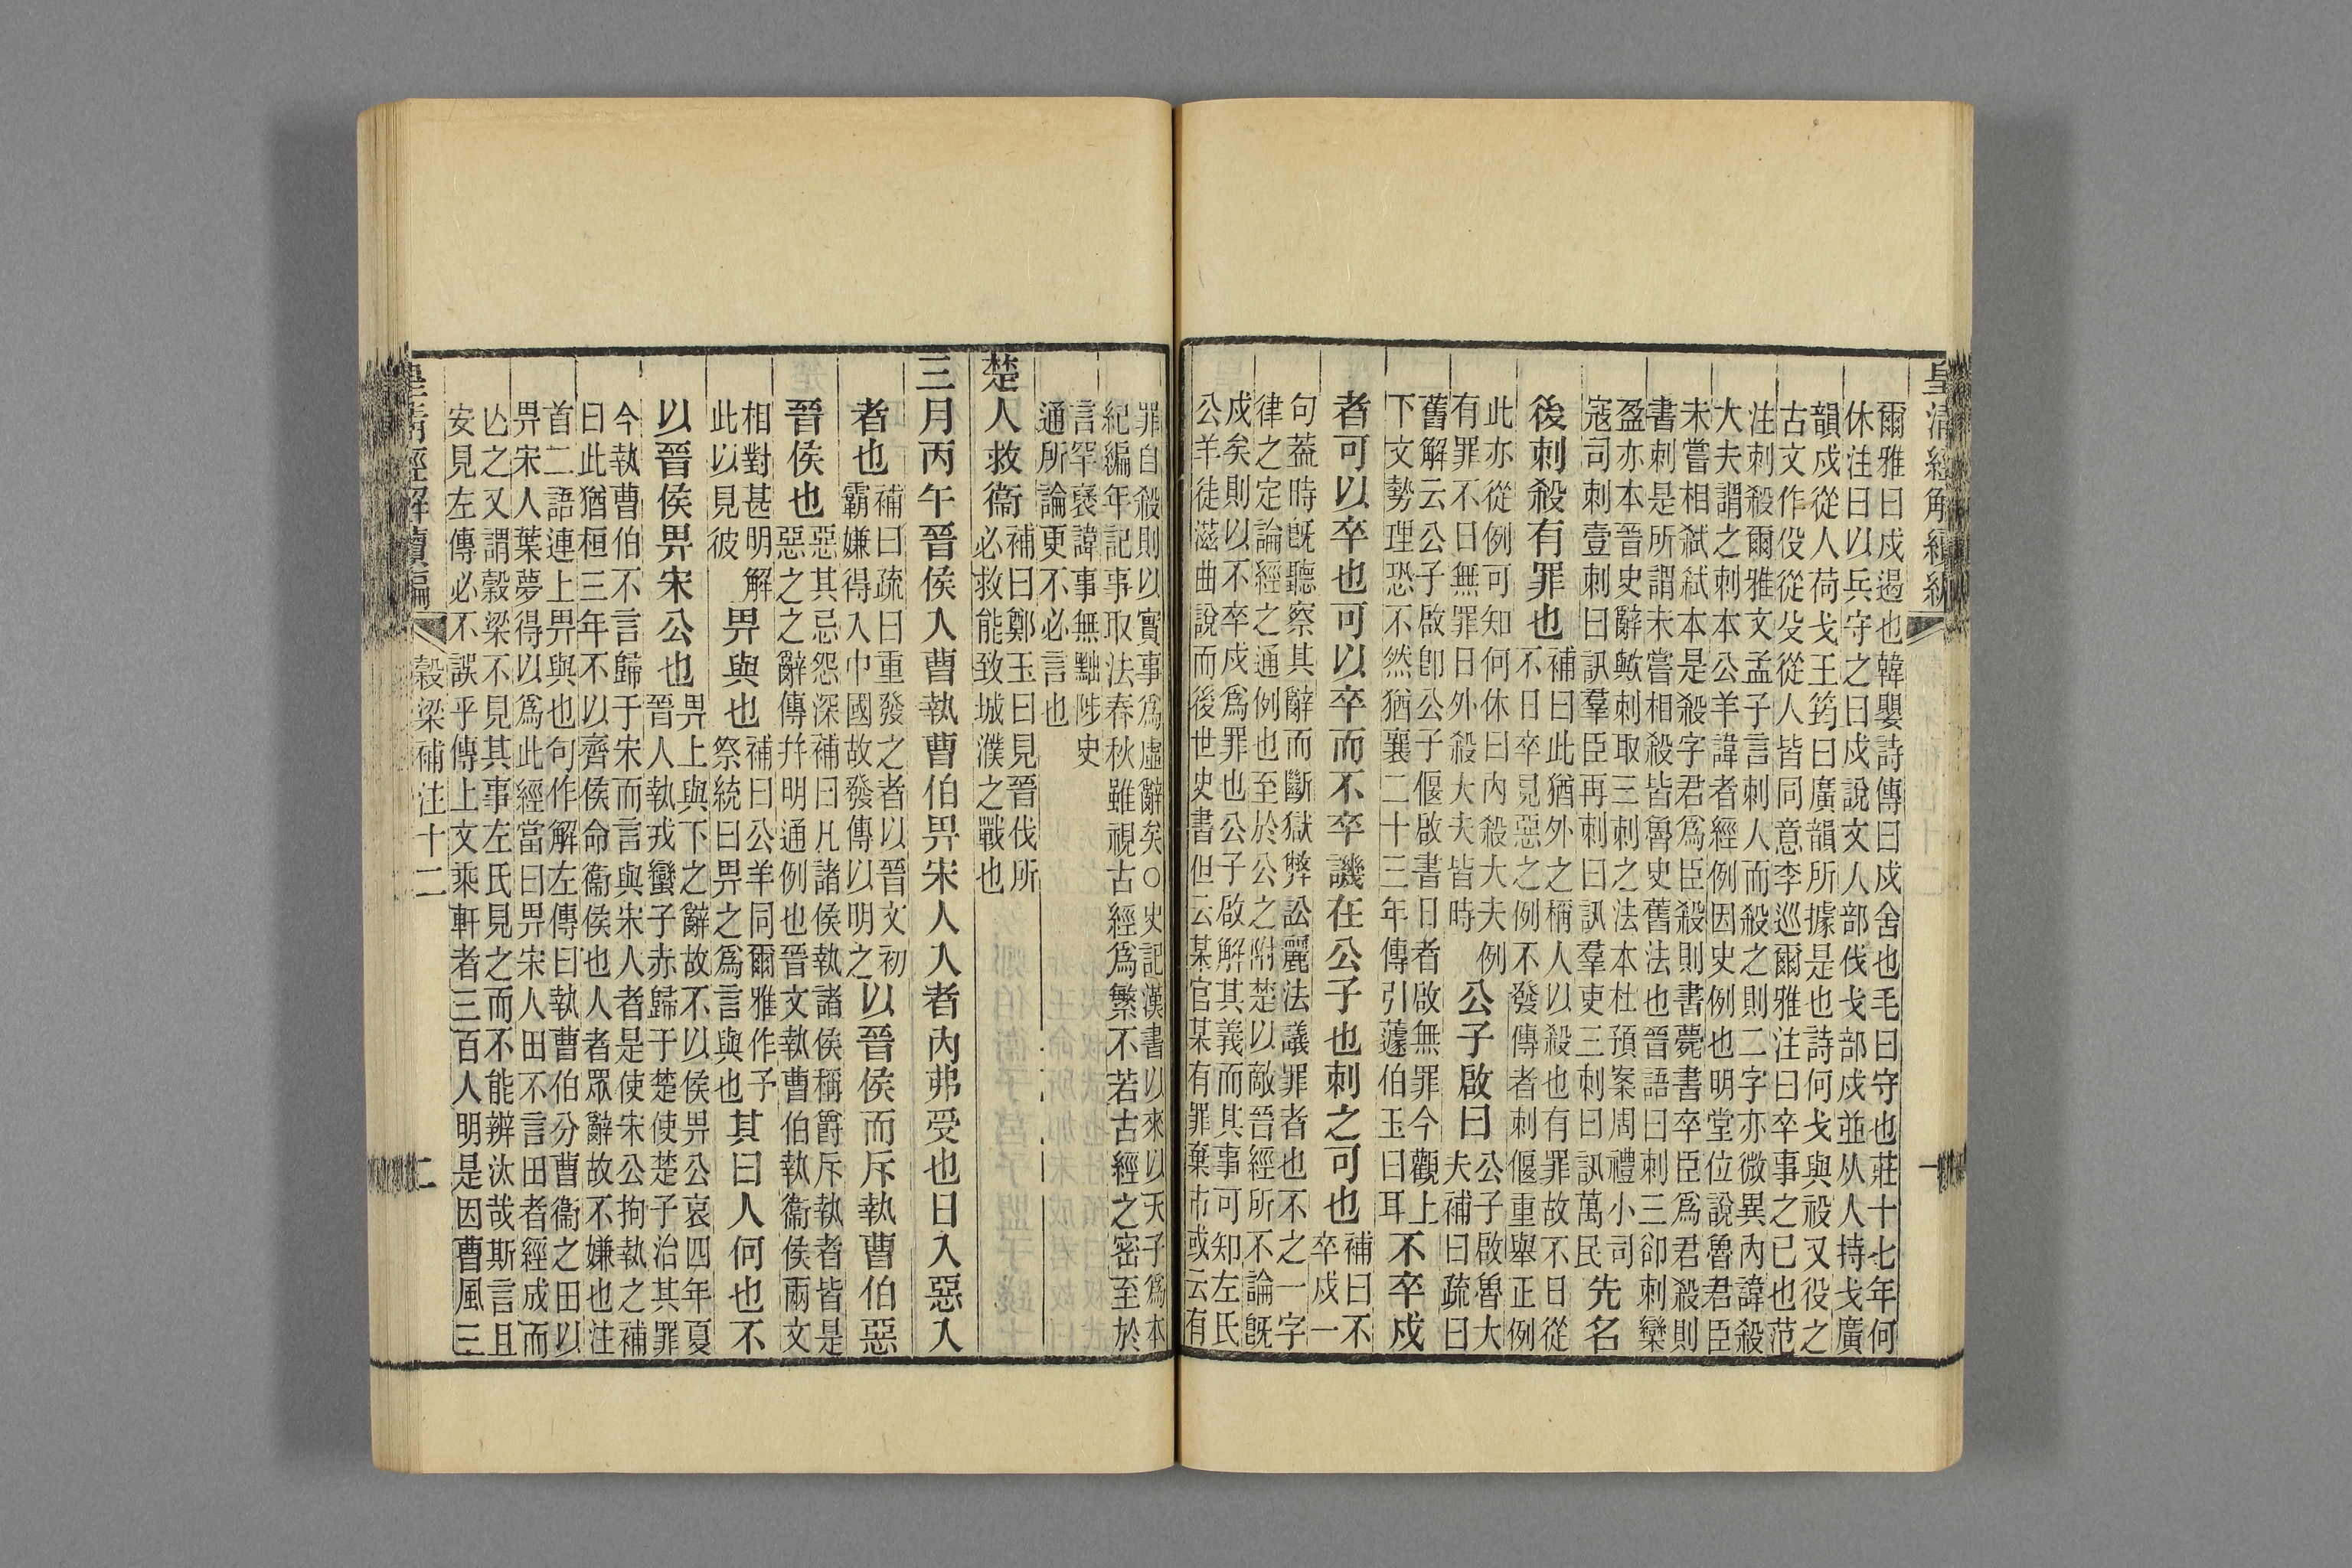 皇淸經解續編
爾雅曰戍遏也韓嬰詩傳曰戍舍也毛曰守也莊十七年何
休注曰以兵守之曰戍說文人部伐戈部戍並从人持戈廣
韻戍從人荷戈王筠曰廣韻所據是也詩何戈與祋又役之
古文作伇從殳從人皆同意李巡爾雅注曰卒事之已也范
注刺殺爾雅文孟子言刺人而殺之則二字亦微異內諱殺
大夫謂之刺本公羊諱者經例因史例也明堂位說魯君臣
未嘗相弑弑本是殺字君爲臣殺則書薨書卒臣爲君殺則
書刺是所謂未嘗相殺皆魯史舊法也晉語曰刺三卻刺欒
盈亦本晉史辭歟刺取三刺之法本杜預案周禮小司
寇司刺壹刺曰訊羣臣再刺曰訊羣吏三刺曰訊萬民
先名
後刺殺有罪也
補曰此猶外之稱人以殺也有罪故不日從
不日卒見惡之例不發傳者刺偃重舉正例
此亦從例可知何休曰內殺大夫例
有罪不日無罪日外殺大夫皆時
公子啟曰
公子啟魯大
夫補曰疏曰
舊解云公子啟卽公子偃啟書日者啟無罪今觀上
下文勢理恐不然猶襄二十三年傳引蘧伯玉曰耳
不卒戍
者可以卒也可以卒而不卒譏在公子也刺之可也
補曰不
卒戍一
句葢時旣聽察其辭而斷獄弊訟麗法議罪者也不之一字
律之定論經之通例也至於公之附楚以敵晉經所不論旣
戍矣則以不卒戍爲罪也公子啟解其義而其事可知左氏
公羊徒滋曲說而後世史書但云某官某有罪棄市或云有
罪自殺則以實事爲虛辭矣○史記漢書以來以天子爲本
紀編年記事取法春秋雖視古經爲繁不若古經之密至於
言罕襃諱事無黜陟史
通所論更不必言也
楚人救衞
補曰鄭玉曰見晉伐所
必救能致城濮之戰也
三月丙午晉侯入曹執曹伯畀宋人入者內弗受也日入惡入
者也
補曰疏曰重發之者以晉文初
霸嫌得入中國故發傳以明之
以晉侯而斥執曹伯惡
晉侯也
惡其忌怨深補曰凡諸侯執諸侯稱爵斥執者皆是
惡之之辭傳幷明通例也晉文執曹伯執衞侯兩文
相對甚明解
此以見彼
畀與也
補曰公羊同爾雅作予
祭統曰畀之爲言與也
其曰人何也不
以晉侯畀宋公也
畀上與下之辭故不以侯畀公哀四年夏
晉人執戎蠻子赤歸于楚使楚子治其罪
今執曹伯不言歸于宋而言與宋人者是使宋公拘執之補
曰此猶桓三年不以齊侯命衞侯也人者眾辭故不嫌也注
首二語連上畀與也句作解左傳曰執曹伯分曹衞之田以
畀宋人葉夢得以爲此經當曰畀宋人田不言田者經成而
亾之又謂穀梁不見其事左氏見之而不能辨汰哉斯言且
安見左傳必不誤乎傳上文乘軒者三百人明是因曹風三
皇淸經解續編
穀梁補注十二
二